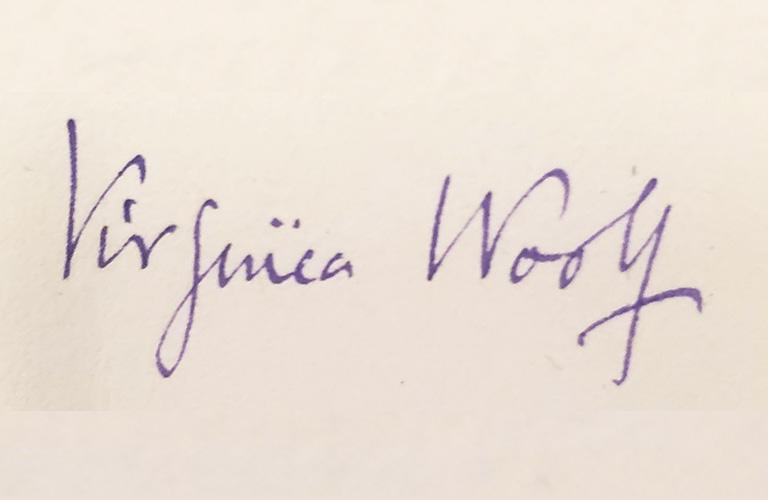 Virginia Woolf